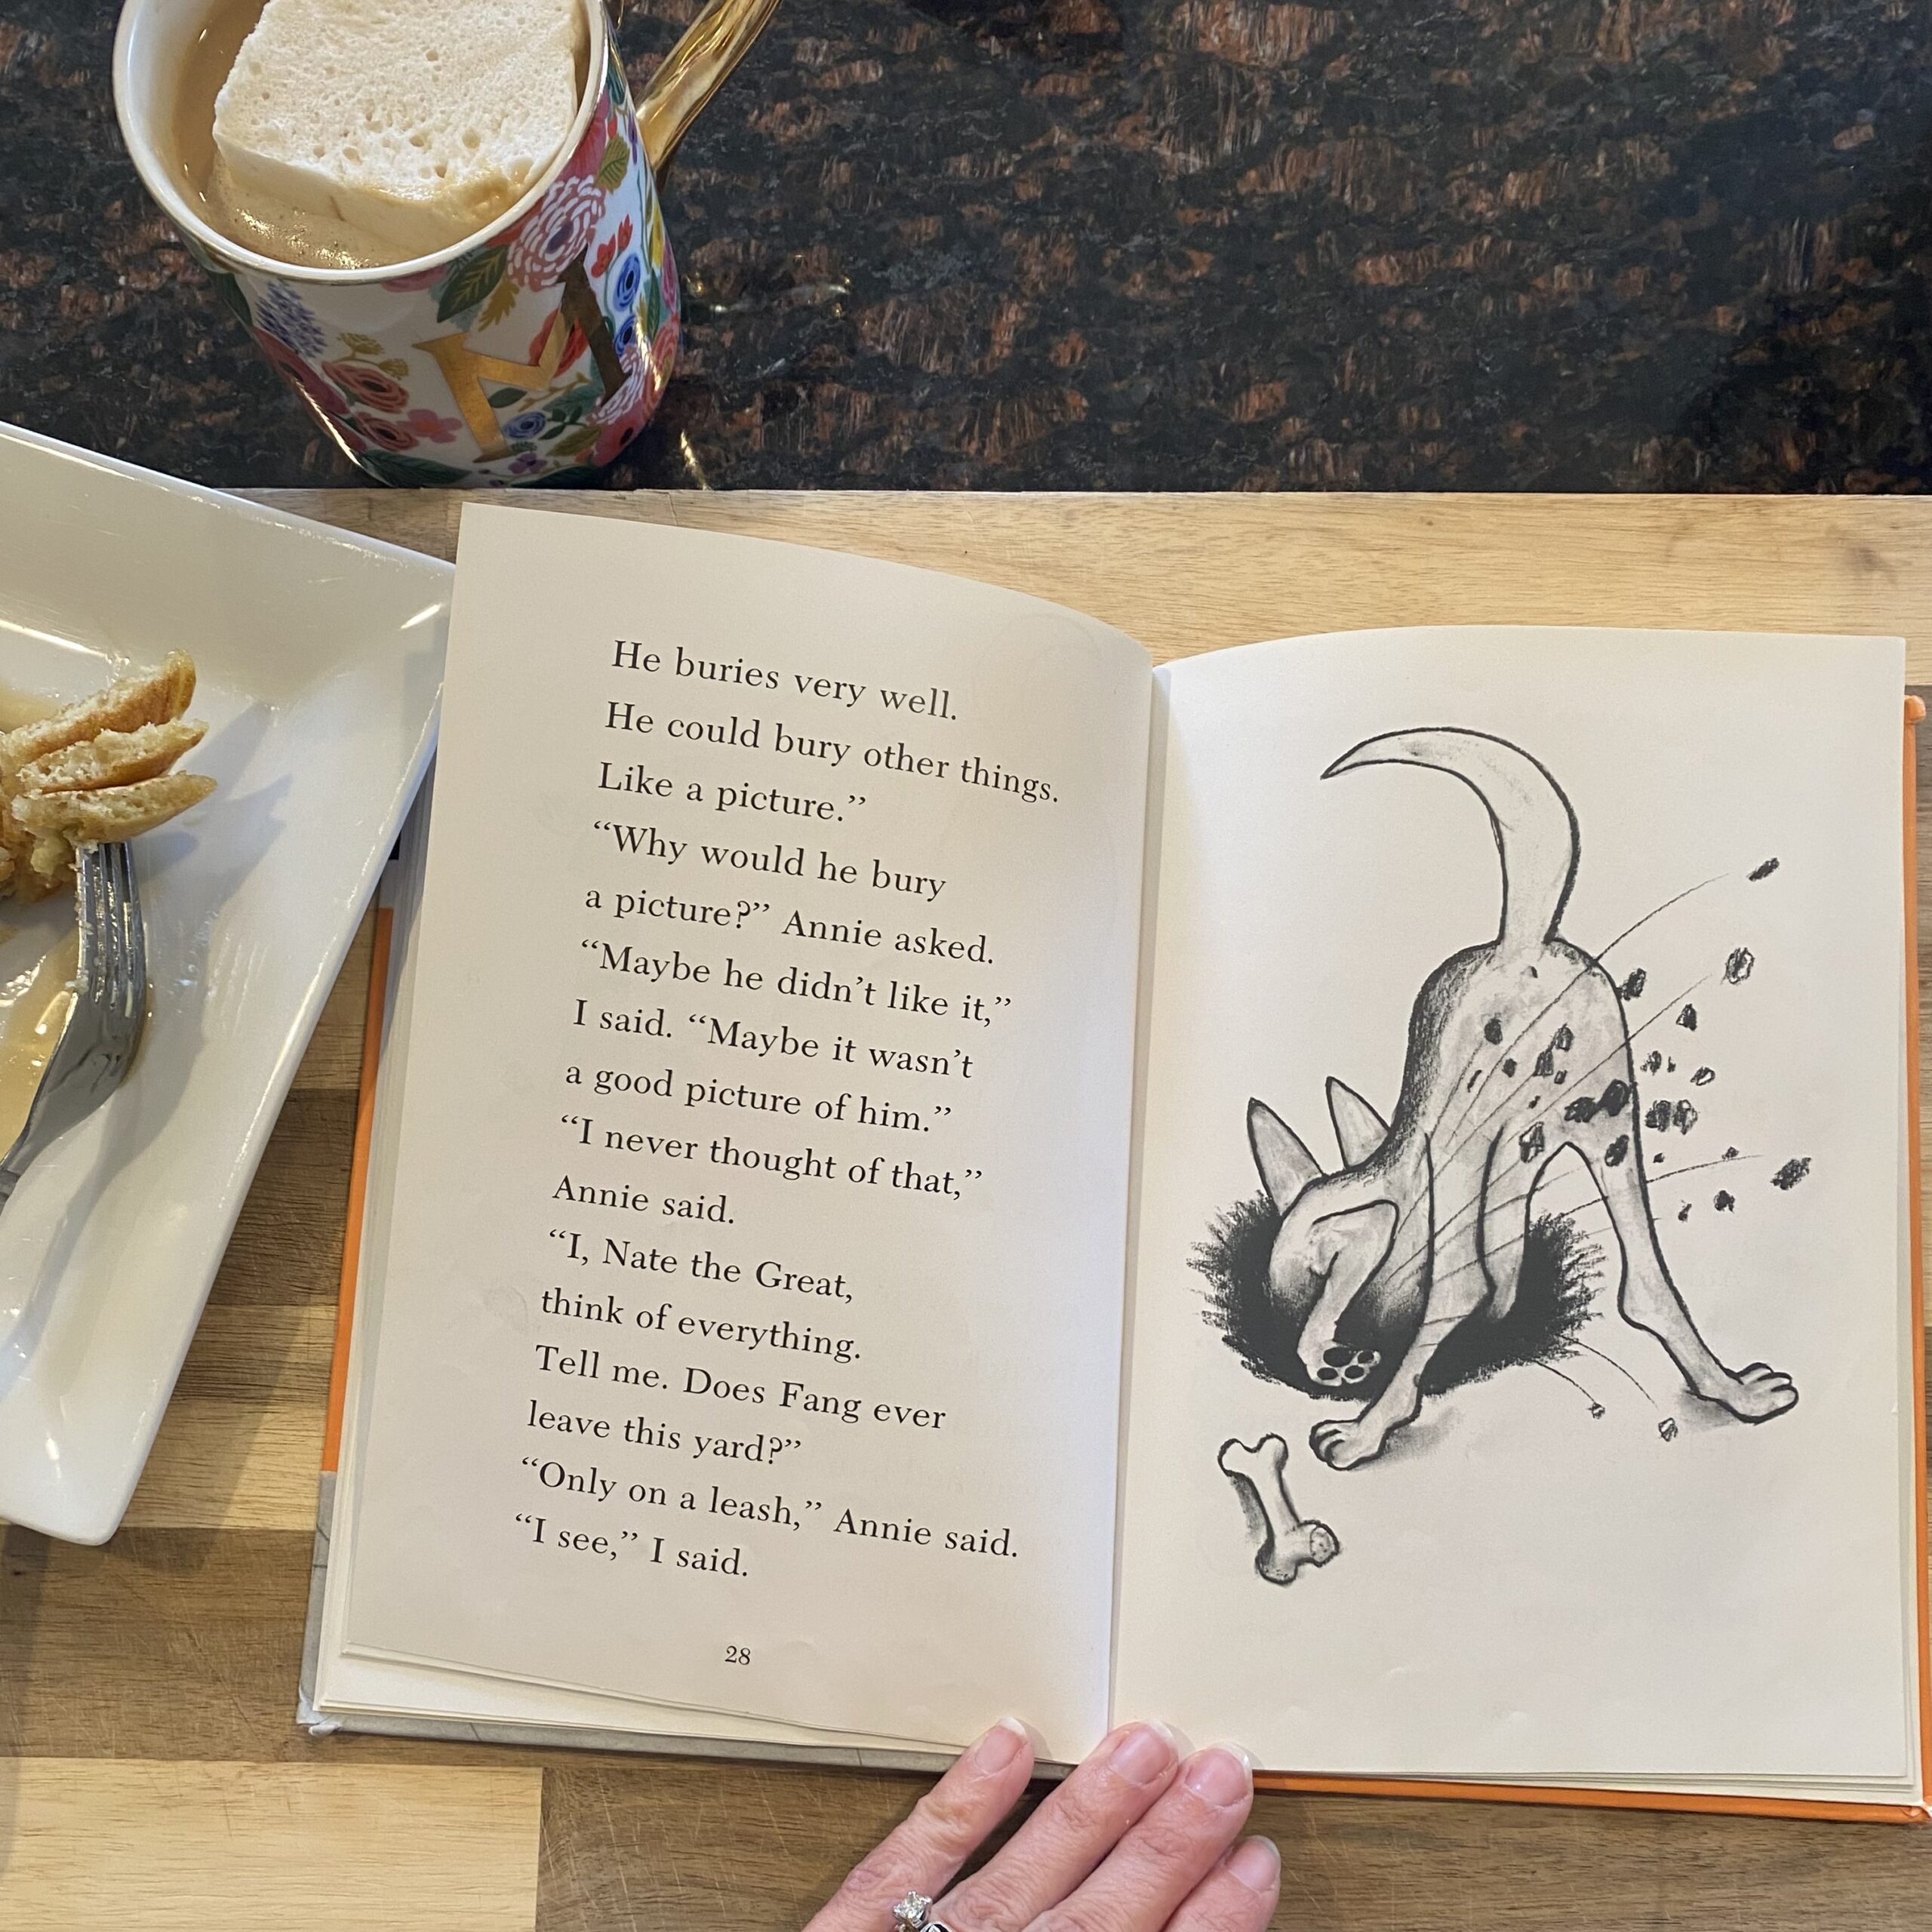 M
He buries very well.
He could bury other things.
Like a picture.”
“Why would he bury
a picture?” Annie asked.
“Maybe he didn’t like it,”
I said. “Maybe it wasn’t
a good picture of him.”
“I never thought of that,”
Annie said.
“I, Nate the Great,
think of everything.
Tell me. Does Fang ever
leave this yard?”
“Only on a leash,” Annie said.
“I see,” I said.
28